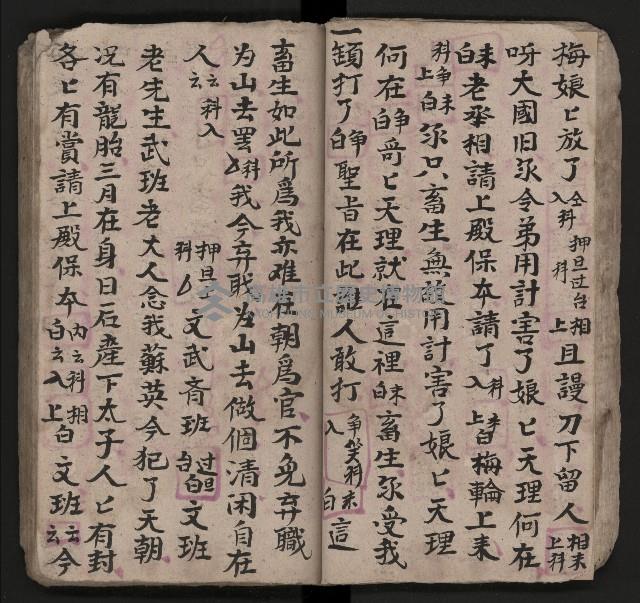 梅娘匕放了仝科入押旦过台科相上且謾刀下留人相末上科
呀大國旧尔今弟用計害了娘匕天理何在
末白老丞相請上殿保本請了科入末上白梅輪上来
科争上末白尔只畜生無故用計害了娘匕天理
何在争白哥匕天理就在這裡末白畜生尔受我
一鎚打了争白聖旨在此誰人敢打争笑科入末白這
畜生如此所爲我亦难在朝爲官不免弃職
为山去罢科我今弃職为山去做個清闲自在
人云云科入押旦上科文武斉班过台旦白文班
老先生武班老大人念我蘇英今犯了天朝
况有龍胎三月在身日后產下太子人匕有封
各匕有賞請上殿保本內云科白云入相上白文班云云今
高雄市立歷史博物館
KAOHSIUNG MUSEUM OF HISTORY